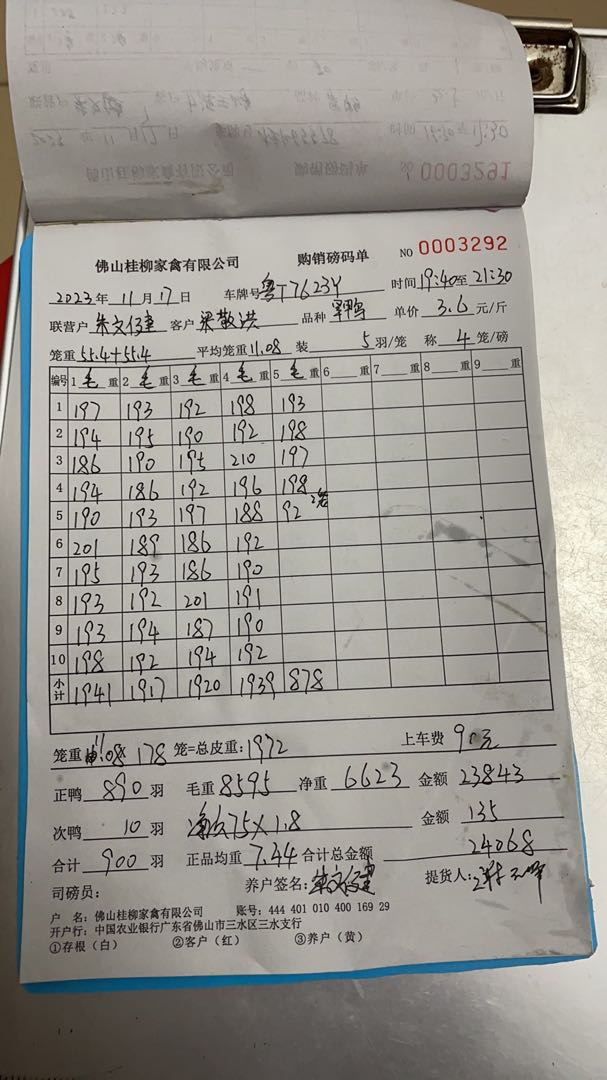 NO 0003291
佛山桂柳家禽有限公司 购销磅码单 NO 0003292
2023年 11月17日 车牌号 粤T7623Y 时间 19:40至 21:30
联营户 客户 梁敬洪 品种 单价 3.6 元/斤
笼重 55.4+55.4 平均笼重 11.08 装 5 羽/笼 称 4 笼/磅
编号 1 毛 重 2 毛 重 3 毛 重 4 毛 重 5 毛 重 6 重 7 重 8 重 9 重
1 197 193 192 198 193
2 194 195 190 192 198
3 186 190 195 210 197
4 194 186 192 196 198
5 190 193 197 188 92 2笼
6 201 189 186 192
7 195 193 186 190
8 193 192 201 191
9 193 194 187 190
10 198 192 194 192
小计 1941 1917 1920 1939 878
笼重 11.08 178 笼=总皮重: 1972 上车费 90元
正鸭 890 羽 毛重 8595 净重 6623 金额 23843
次鸭 10 羽 75×1.8 金额 135
合计 900 羽 正品均重 7.44 合计总金额 24068
司磅员: 养户签名: 提货人:
户 名: 佛山桂柳家禽有限公司 账号: 444 401 010 400 169 29
开户行: 中国农业银行广东省佛山市三水区三水支行
①存根（白） ②客户（红） ③养户（黄）